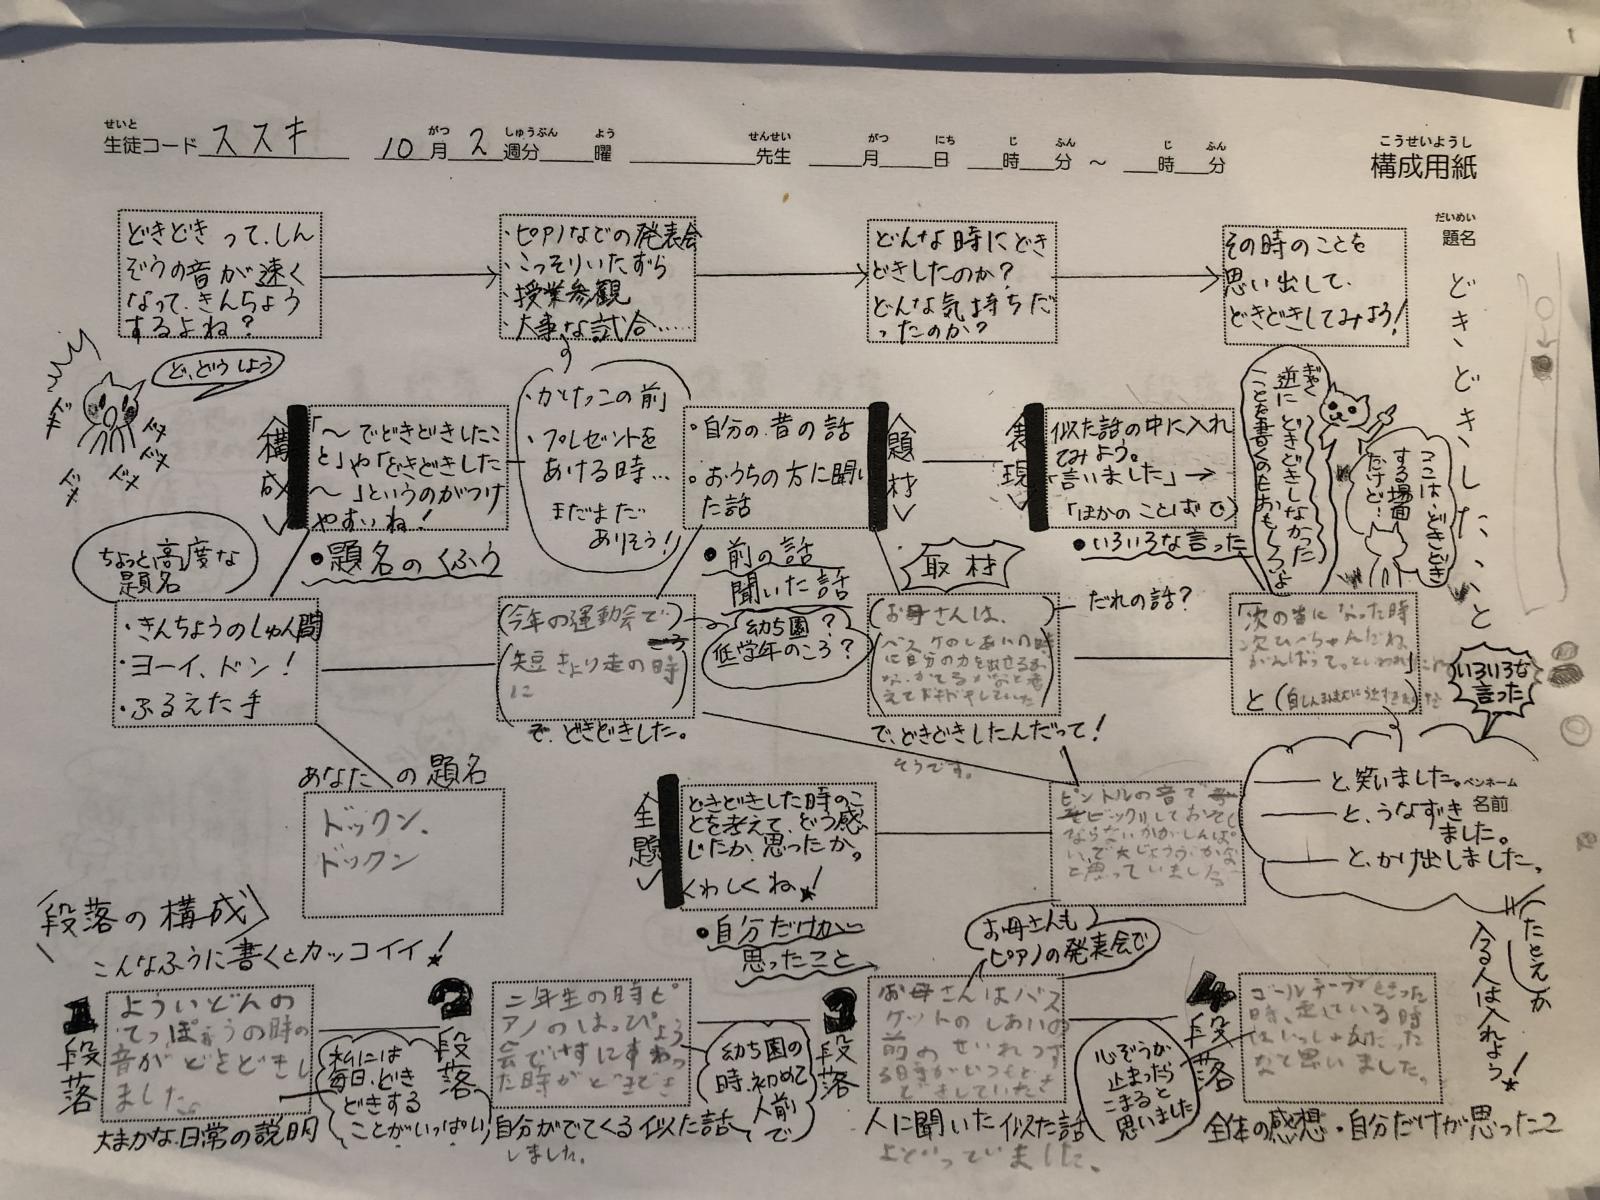 せいと
生徒コード ススキ
10月 2週分 曜
がつ しゅうぶん よう
せんせい
先生
がつ にち じ ふん じ ふん
月 日 時 分 ～ 時 分
こうせいようし
構成用紙
だいめい
題名
どきどきした、こと
その時のことを
思い出して、
どきどきしてみよう！
どんな時にどき
どきしたのか？
どんな気持ちだ
ったのか？
・ピアノなどの発表会
・こっそりいたずら
・授業参観
・大事な試合……
どきどきって、しん
ぞうの音が速く
なって、きんちょう
するよね？
ど、どうしよう
ドキ
ドメ
ドメ
ドメ
ドメ
〈構成〉
「～でどきどきしたこ
と」や「どきどきした
～」というのがつけ
やすいね！
・題名のくふう
ちょっと高度な
題名
・かけっこの前
・プレゼントを
あける時…
まだまだ
ありそう！
・自分の昔の話
・おうちの方に聞い
た話
・前の話
聞いた話
〈題材〉
取材
〈表現〉
似た話の中に入れ
てみよう。
「言いました」→
「ほかのことばで」
・いろいろな言った
ぎゃく
逆にどきどきしなかった
ことを書くのもおもしろいよ
ここは、どきどき
する場面
だけど…
・きんちょうのしゅん間
・ヨーイ、ドン！
・ふるえた手
(今年の運動会で)
(短きょり走の時
に)
で、どきどきした。
幼ち園？
低学年のころ？
(お母さんは、
バスケのしあいの時
に自分の力を出せるか
な、かてるかなと考
えてドキドキしていた)
で、どきどきしたんだって！
そうです。
だれの話？
「次の番になった時
がんばってっといわれ」
と
いろいろな
言った
―と、笑いました。
―と、うなずき
ました。
―と、かけ出しました。
ペンネーム
名前
(たとえが
入る人は入れよう！
あなたの題名
ドックン、
ドックン
〈主題〉
どきどきした時のこ
とを考えて、どう感
じたか、思ったか。
くわしくね！
・自分だけが
思ったこと
ピストルの音で
ビックリしておそく
ならないかがしんぱ
いで大じょうぶかな
と思っていました
〈段落の構成〉
こんなふうに書くとカッコイイ！
1段落
よういどんの
てっぽうの時の
音がどきどきし
ました。
大まかな日常の説明
私には
毎日、どき
どきする
ことがいっぱい
2段落
二年生の時ピ
アノのはっぴょう
会でいすにすわっ
た時がどきどき
しました。
自分がでてくる似た話
幼ち園の
時、初めて
人前で
3段落
お母さんはバス
ケットのしあいの
前のせいれつす
る時がいつもど
きどきしていたさ
よといっていました。
人に聞いた似た話
お母さんも
ピアノの発表会で
4段落
ゴールテープきった
時、走っている時
はいっしゅんだった
なと思いました。
心ぞうが
止まったら
こまると
思いました
全体の感想・自分だけが思ったこ